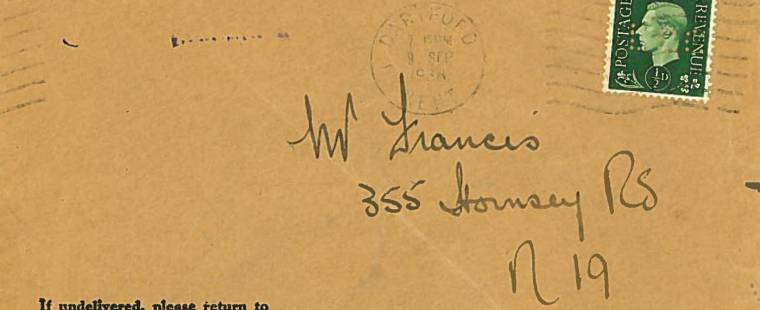 DARTFORD
7 PM
9 SEP
1938
KENT
POSTAGE REVENUE
½D
Mr Francis
355 Hornsey Rd
N 19
If undelivered, please return to